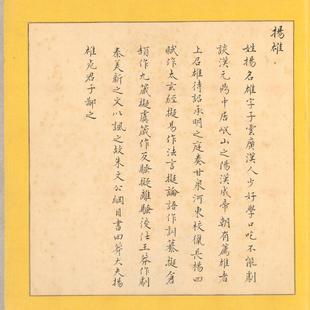 揚雄
姓揚名雄字子雲廣漢人少好學口吃不能劇
談漢元時中居岷山之陽漢成帝朝有薦雄者
上召雄待詔承明之庭奏甘泉河東校獵長楊四
賦作太玄經擬易作法言擬論語作訓纂擬倉
頡作九箴擬虞箴作反騷擬離騷後仕王莽作劇
秦美新之文以諷之故朱文公綱目書曰莽大夫揚
雄死君子鄙之